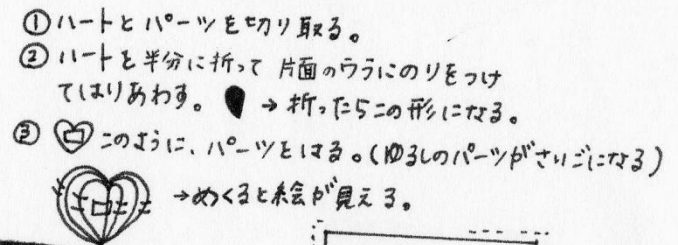 ①ハートとパーツを切り取る。
②ハートを半分に折って 片面のウラにのりをつけ
てはりあわす。 → 折ったらこの形になる。
③ このように、パーツをはる。(ゆるしのパーツがさいごになる)
→めくると絵が見える。